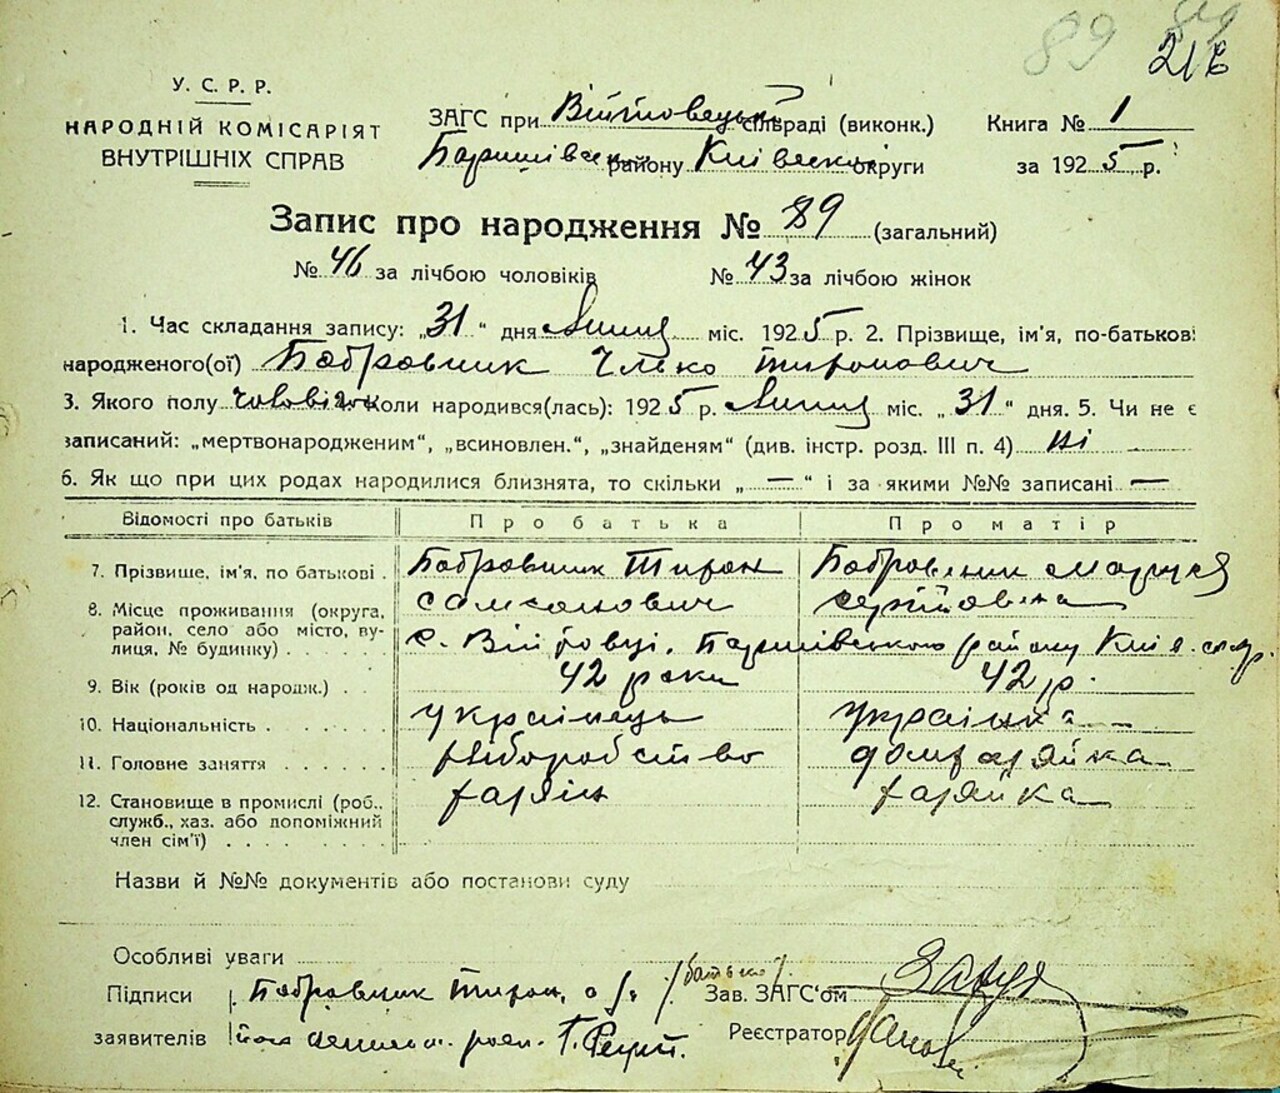 89
216
У. С. Р. Р.
НАРОДНІЙ КОМІСАРІЯТ
ВНУТРІШНІХ СПРАВ
ЗАГС при Війтовецькій сільраді (виконк.)
Баришівськ району Київської округи
Книга № 1
за 1925 р.
Запис про народження № 89 (загальний)
№ 46 за лічбою чоловіків № 43 за лічбою жінок
1. Час складання запису: „31“ дня Липня міс. 1925 р. 2. Прізвище, ім'я, по-батькові
народженого(ої) Бобровник Ілько Тиронович
3. Якого полу чоловік Коли народився(лась): 1925 р. Липня міс. „31“ дня. 5. Чи не є
записаний: „мертвонародженим“, „всиновлен.“, „знайденям“ (див. інстр. розд. III п. 4) ні —
6. Як що при цих родах народилися близнята, то скільки „—“ і за якими №№ записані —
Відомості про батьків Про батька Про матір
7. Прізвище, ім'я, по батькові . Бобровник Тирон
Самсонович
Бобровник Маруся
Сергіївна
8. Місце проживання (округа,
район, село або місто, ву-
лиця, № будинку) . . . . . с. Війтовці, Баришівського району Київ. окр.
9. Вік (років од народж.) . . 42 роки 42 р.
10. Національність . . . . . . українець українка
11. Головне заняття . . . . . . хліборобство домхазяйка
12. Становище в промислі (роб.,
служб., хаз. або допоміжний
член сім'ї) . . . . . . . . хазяїн хазяйка
Назви й №№ документів або постанови суду
Особливі уваги
Підписи Бобровник Тирон, /батько/.
заявителів
Зав. ЗАГС'ом
Реєстратор